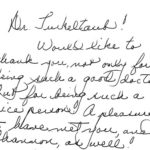 Dr. Turkeltaub!
Would like to
thank you, not only for
being such a good docto
But for being such a
ice person! A pleasure
to have met you, and
Shannon, as well!